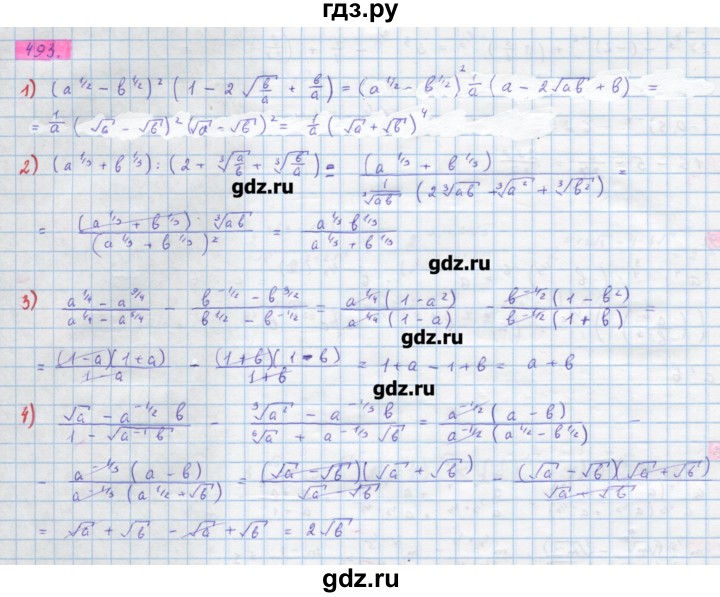 гдз.ру
493.
1) (a^1/2 - b^1/2)^2 (1 - 2 √(b/a) + b/a) = (a^1/2 - b^1/2)^2 1/a (a - 2√ab + b) =
= 1/a (√a - √b)^2 (√a - √b)^2 = 1/a (√a + √b)^4
2) (a^1/3 + b^1/3) : (2 + ∛(a/b) + ∛(b/a)) = (a^1/3 + b^1/3) / (1/∛ab (2∛ab + ∛a^2 + ∛b^2)) =
gdz.ru
= (a^1/3 + b^1/3) ∛ab / (a^1/3 + b^1/3)^2 = a^1/3 b^1/3 / (a^1/3 + b^1/3)
3) (a^1/4 - a^9/4) / (a^1/4 - a^5/4) - (b^-1/2 - b^3/2) / (b^1/2 - b^-1/2) = a^1/4 (1 - a^2) / (a^1/4 (1 - a)) - b^-1/2 (1 - b^2) / (b^-1/2 (1 + b)) =
= (1 - a)(1 + a) / (1 - a) - (1 + b)(1 - b) / (1 + b) = 1 + a - 1 + b = a + b
gdz.ru
4) (√a - a^-1/2 b) / (1 - √(a^-1 b)) - (∛a^2 - a^-1/3 b) / (⁶√a + a^-1/3 √b) = a^-1/2 (a - b) / (a^-1/2 (a^1/2 - b^1/2)) -
- a^-1/3 (a - b) / (a^-1/3 (a^1/2 + √b)) = (√a - √b)(√a + √b) / (√a - √b) - (√a - √b)(√a + √b) / (√a + √b)
= √a + √b - √a + √b = 2√b
gdz.ru
gdz.ru